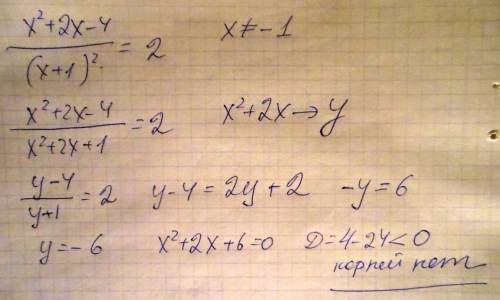 (x²+2x-4)/(x+1)² = 2 x ≠ -1
(x²+2x-4)/(x²+2x+1) = 2 x²+2x → y
(y-4)/(y+1) = 2 y-4 = 2y+2 -y = 6
y = -6 x²+2x+6=0 D=4-24<0
корней нет